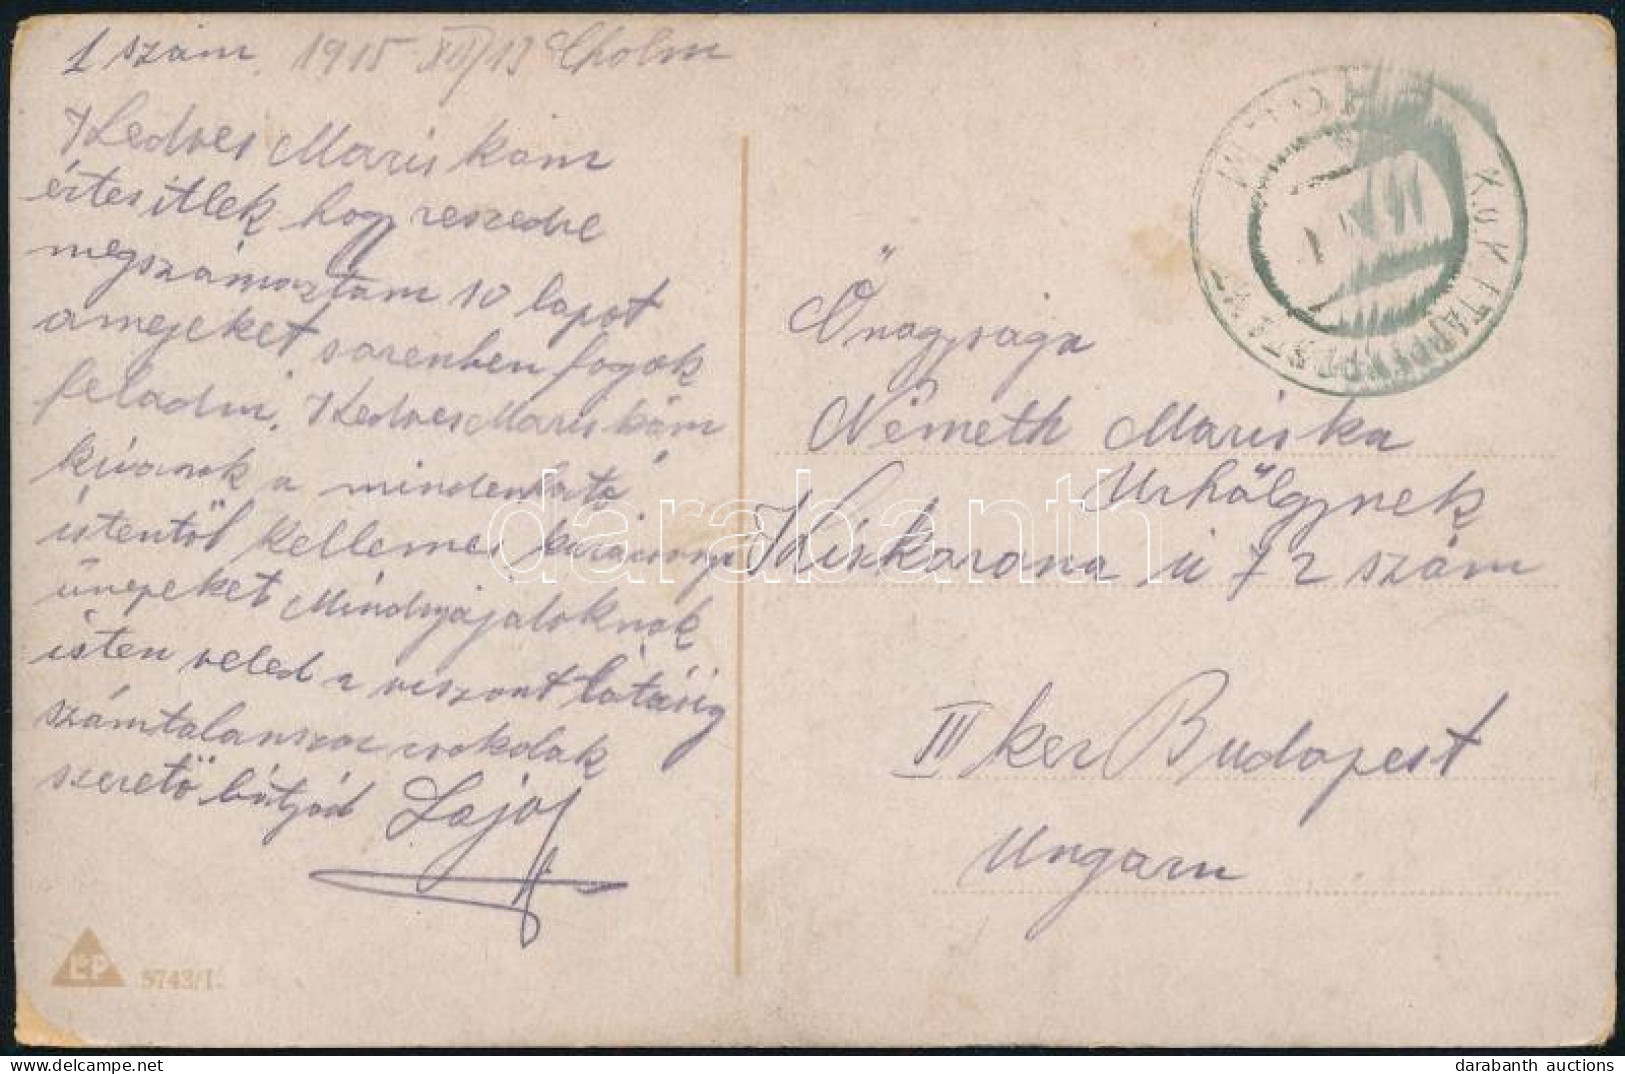 1 szám. 1915 XII/13 Cholm
Kedves Mariskám
értesitlek hogy reszedre
megszámoztam 10 lapot
amejeket sorenben fogok
feladni. Kedves Mariskám
kivánok a mindenható
istentöl kellemes karácsonyi
ünepeket Mindnyájatoknak
isten veled a viszont látásig
számtalanszor csokolak
szerető bátyád Lajos
L&P 5743/I.
K.U.K. ETAPPENPOSTAMT
CHOLM
Önagysaga
Németh Mariska
Urhölgynek
Kiskorona u 72 szám
III ker Budapest
Ungarn
darabanth
darabanth auctions